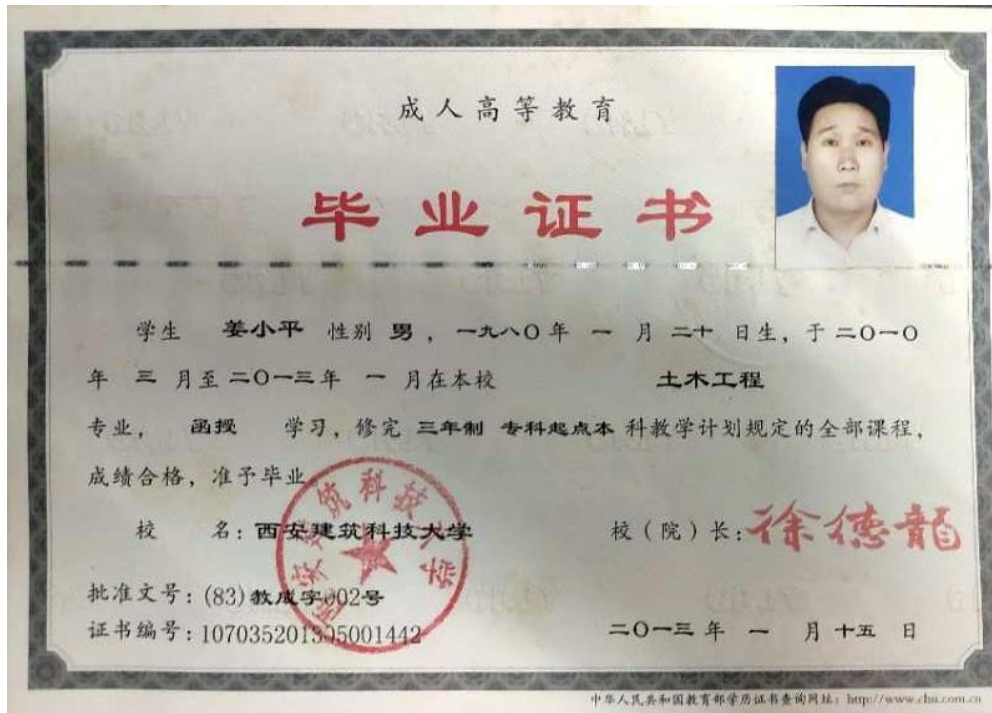 成人高等教育
毕业证书
学生 姜小平 性别 男，一九八〇年 一 月 二十 日生，于二〇一〇
年 三 月至二〇一三年 一 月在本校 土木工程
专业， 函授 学习，修完 三年制 专科起点本 科教学计划规定的全部课程，
成绩合格，准予毕业
校 名：西安建筑科技大学
校（院）长：徐德龍
批准文号：(83)教成字002号
证书编号：107035201305001442
二〇一三年 一 月 十五 日
中华人民共和国教育部学历证书查询网址：http://www.chsi.com.cn